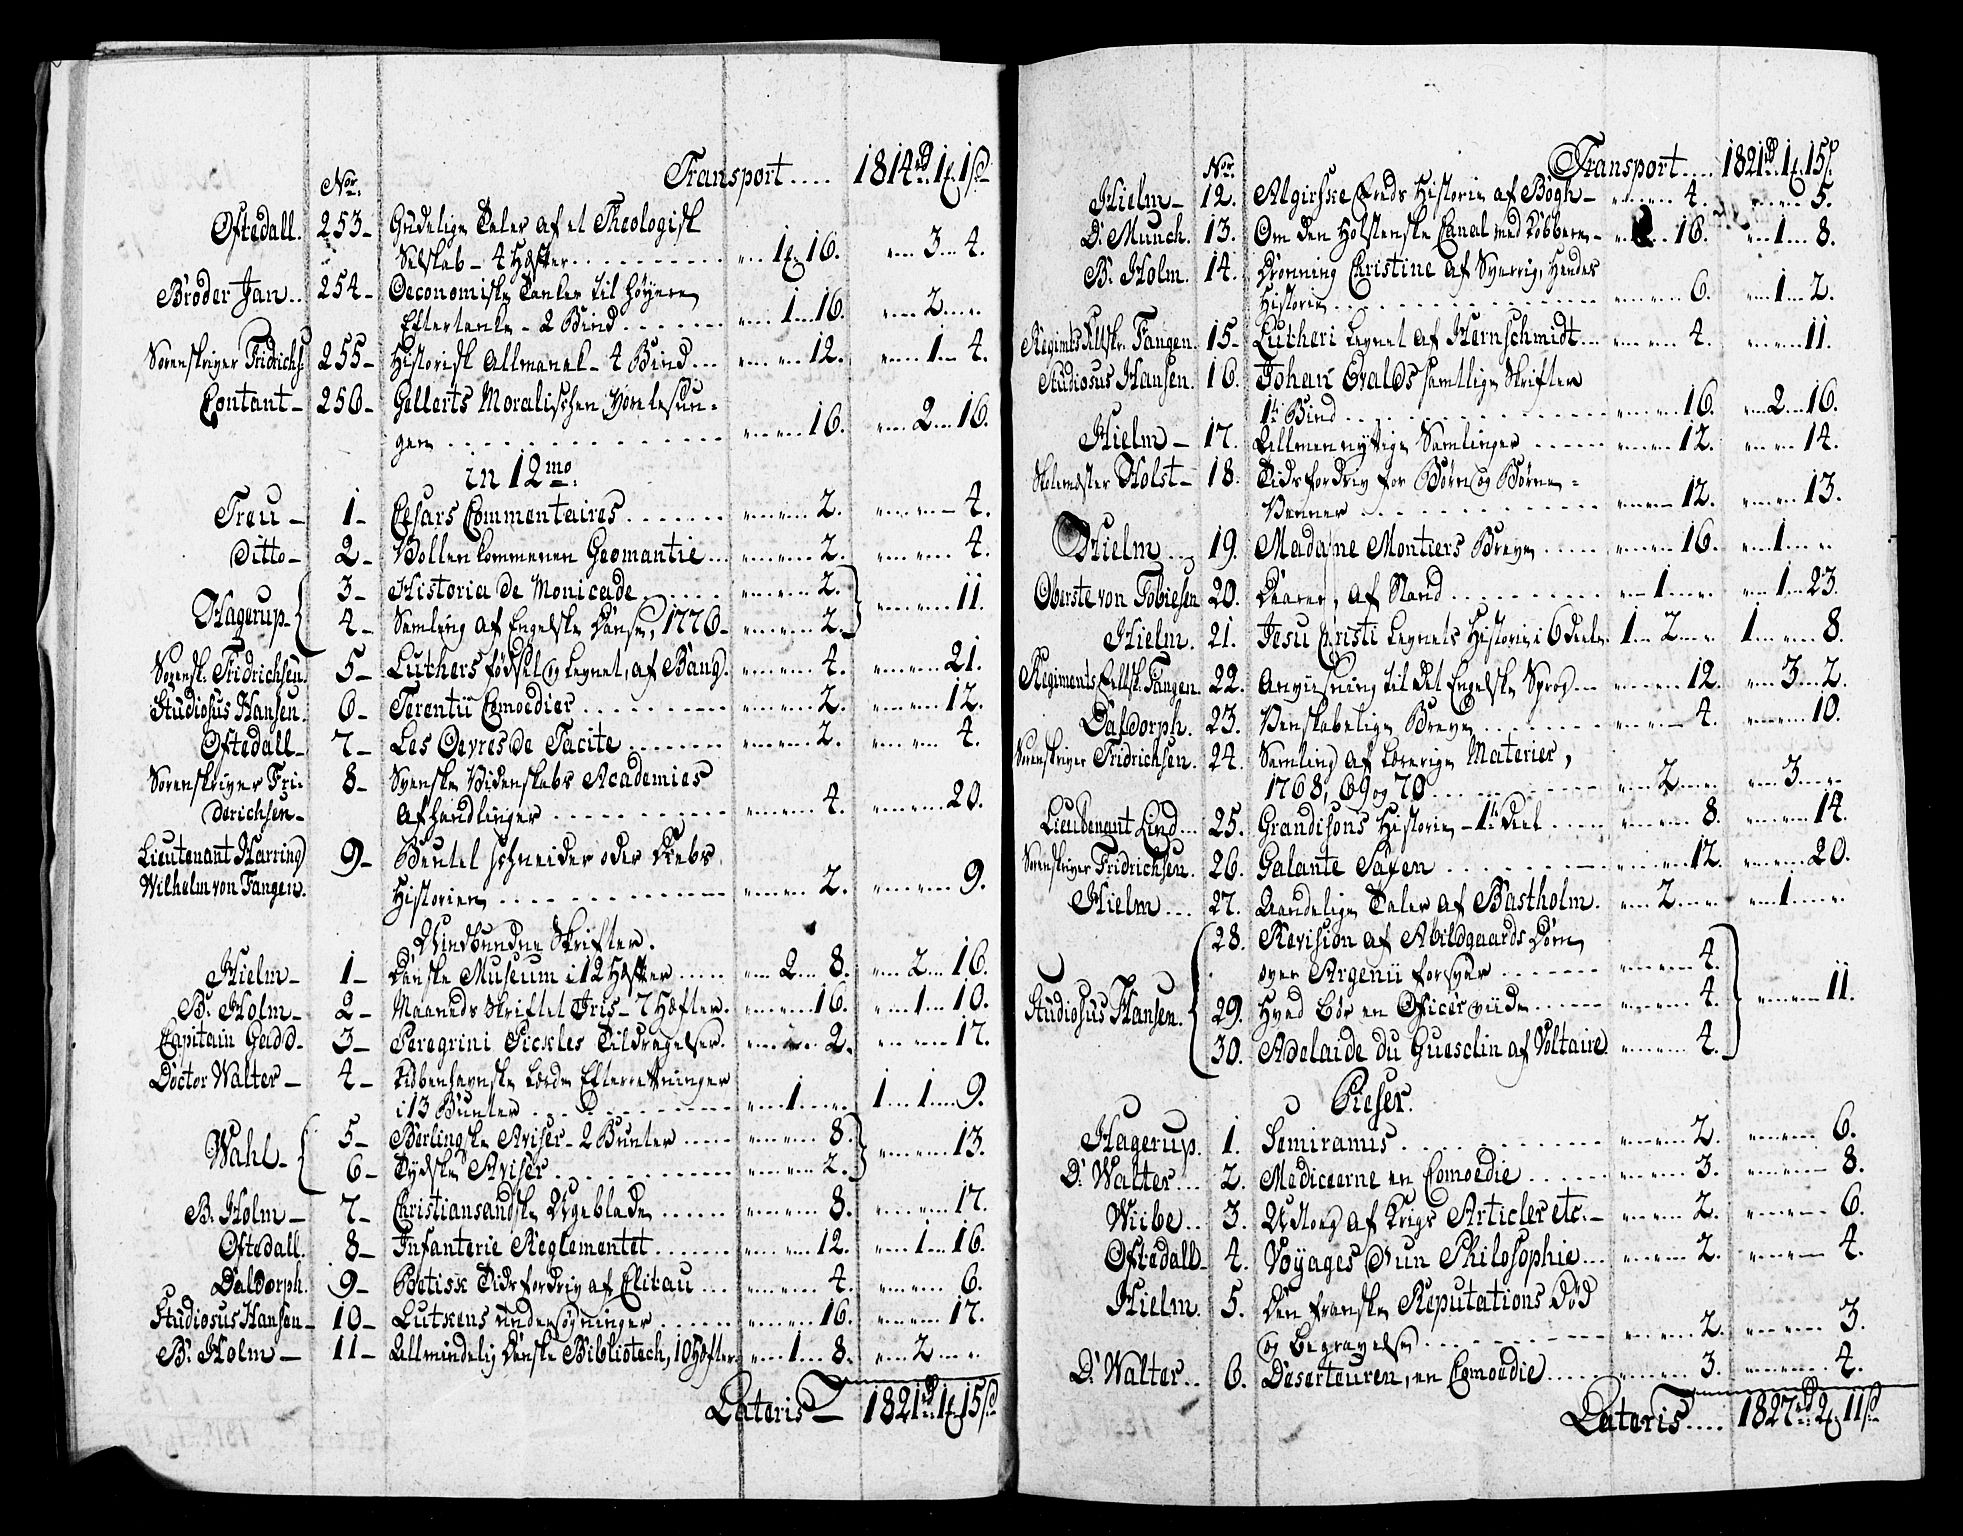 Transport .... 1814rd 1 1 s
No.
Oftedall. 253 - Gudelige Taler af et Theologisk
Selskab - 4 Hæfter .......... 1 16. 3. 4.
Broder Jan .. 254 - Oeconomiske Tanker til høyere
Eftertanke - 2 Bind ....... 1. 16. 2.
Sorenskriver Fridrichs: 255 - Historisk Allmanak - 4 Bind ... 12. 1. 4.
Contant - 256 - Gellerts Moralischen Vorlesun-
gen .......... 16. 2. 16.
in 12mo:
Treu - 1 - Cesars Commentaires ....... 2. 4.
Ditto - 2 - Vollenkommenen Geomantie ... 2. 4.
Hagerup - 3 - Historia de Monicade ...... 2.
4 - Samling af Engelske Danse, 1776 - 2. 11.
Sorensk. Fridrichsen. 5 - Luthers fødsel og levnet, af Bang. 4. 21.
Studiosus Hansen. 6 - Terentii Comoedier ......... 2. 12.
Oftedall - 7 - Les Oevres de Tacite ....... 2. 4.
Sorenskriver Fri- 8 - Svenske Videnskabs Academies
derichsen - Afhandlinger .......... 4. 20.
Lieutenant Harring 9 - Beutelschneider oder Diebs
Wilhelm von Fangen. Historien .......... 2. 9.
Uindbundne Skrifter.
Hielm - 1 - Danske Museum i 12 Hæfter ..... 2. 8. 2. 16.
B. Holm - 2 - Maaneds Skriftet Iris - 7 Hæfter. 16. 1. 10.
Capitain Gedd - 3 - Peregrini Pickles Tildragelser. 2. 17.
Doctor Walter - 4 - Kiøbenhavnske lærde Efterretninger
i 13 Bunter .......... 1. 1. 1. 9.
Wahl - 5 - Berlingske Aviser - 2 Bunter ..... 8.
6 - Tydske Aviser .......... 2. 13.
B. Holm - 7 - Christiansandske Ugeblade ...... 8. 17.
Oftedall. 8 - Infanterie Reglementet ....... 12. 1. 16.
Daldorph. 9 - Poetisk Tidsfordriv af Clitau ... 4. 6.
Studiosus Hansen - 10 - Lutkens undersøgninger ...... 16. 17.
B. Holm - 11 - Allmindelig Danske Bibliotech, 10 Hæfter. 1. 8. 2.
Lateris - 1821rd 1 15 s
Transport .... 1821rd 1 15 s
No.
Hielm - 12. Algirske Creds Historie af Bøgh - 4. 5.
D. Munch. 13. Om den Holstenske Canal med kobbere - 16. 1. 8.
B. Holm. 14. Dronning Christine af Sverrig, Hendes
Historie .......... 6. 1. 2.
Regimts Feltskr. Fangen. 15 - Lutheri levnet af Hernschmidt ... 4. 11.
Studiosus Hansen. 16. Johan Evalds samtlige Skrifter
1te Bind .......... 16. 2. 16.
Hielm - 17. Allmennyttige Samlinger ..... 12. 14.
Skolemester Holst - 18. Tidsfordriv for Børn og Børne-
Venner .......... 12. 13.
Hielm ... 19. Madame Montiers Breve ..... 16. 1.
Oberste von Tobiesen 20. af Stand .......... 1. 1. 23.
Hielm. 21. Jesu Christi levnets Historie i 6 Deele 1. 2. 1. 8.
Regiments Feltsk. Fangen. 22. Anviisning til det Engelske Sprog ... 12. 3. 2.
Daldorph. 23. Venskabelige Breve ....... 4. 10.
Sorenskriver Fridrichsen. 24. Samling af lærerige Materier,
1768, 69 og 70 .......... 2. 3.
Lieutenant Lind ... 25. Grandisons Historie - 1te Deel ..... 8. 14.
Sorenskriver Fridrichsen. 26. Galante Safen .......... 12. 20.
Hielm .... 27. Aandelige Taler af Bastholm. 2. 1.
28. Revision af Abildgaards Dom
over Argenii forsvar ....... 4.
Studiosus Hansen. 29. Hvad bør en Oficer viide ...... 4. 11.
30. Adelaide du Guesclin af Voltaire. 4.
Pieser.
Hagerup. 1. Semiramis .......... 2. 6.
D. Walter ... 2. Mediceerne en Comoedie ...... 3. 8.
Wiibe .. 3. Udtog af Krigs Articler etc. - 2. 6.
Oftedall - 4. Voyages d'un Philosophie ... 2. 4.
Hielm. 5. Den franske Reputations Død
og begravelse .......... 2. 3.
D. Walter .. 6. Deserteuren, en Comoedie ...... 3. 4.
Lateris .... 1827rd 2 11 s